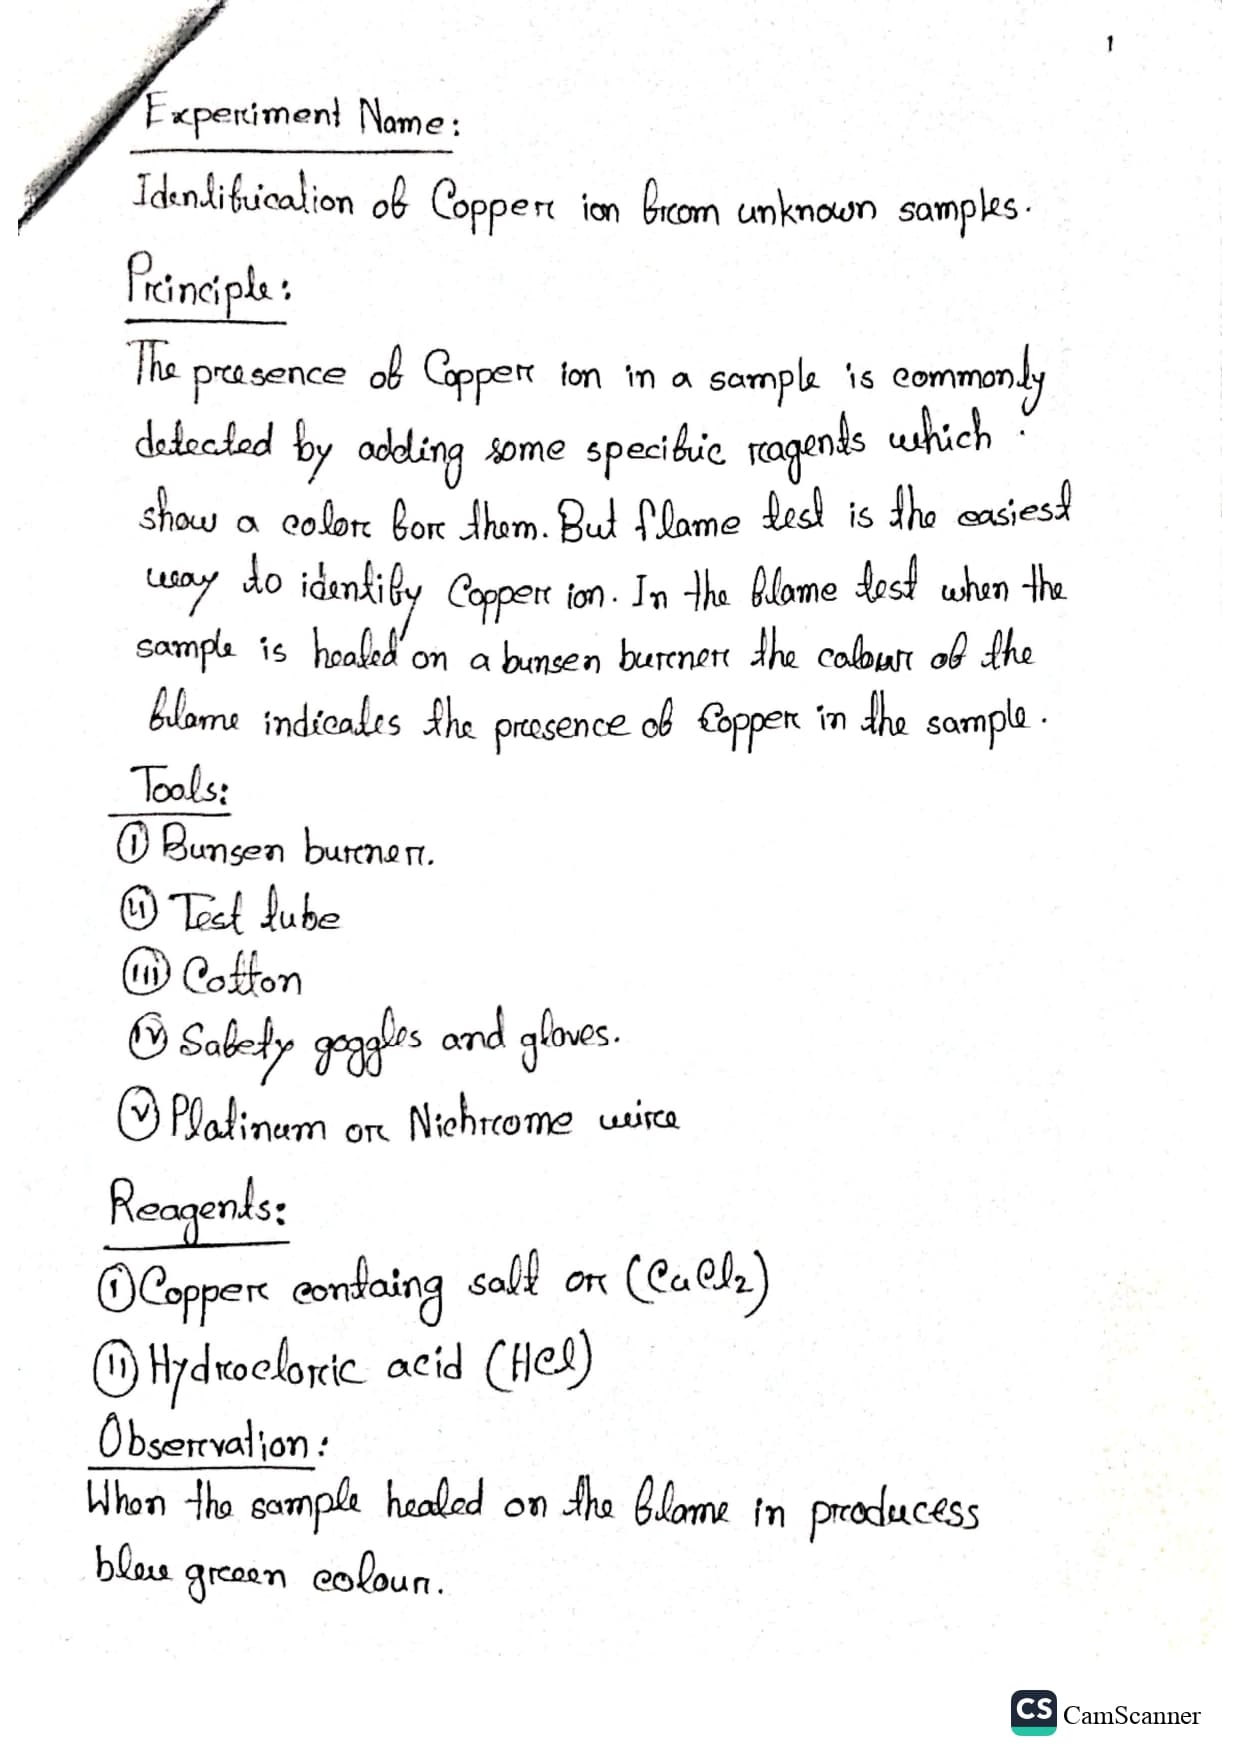 1
Experiment Name:
Identification of Copper ion from unknown samples.
Principle:
The presence of Copper ion in a sample is commonly
detected by adding some specific reagents which
show a color for them. But flame test is the easiest
way to identify Copper ion. In the flame test when the
sample is heated on a bunsen burner the colour of the
flame indicates the presence of Copper in the sample.
Tools:
(i) Bunsen burner.
(ii) Test tube
(iii) Cotton
(iv) Safety goggles and gloves.
(v) Platinum or Nichrome wire
Reagents:
(i) Copper containg salt or (CuCl2)
(ii) Hydrocloric acid (HCl)
Observation:
When the sample heated on the flame in producess
bleu green colour.
CS CamScanner